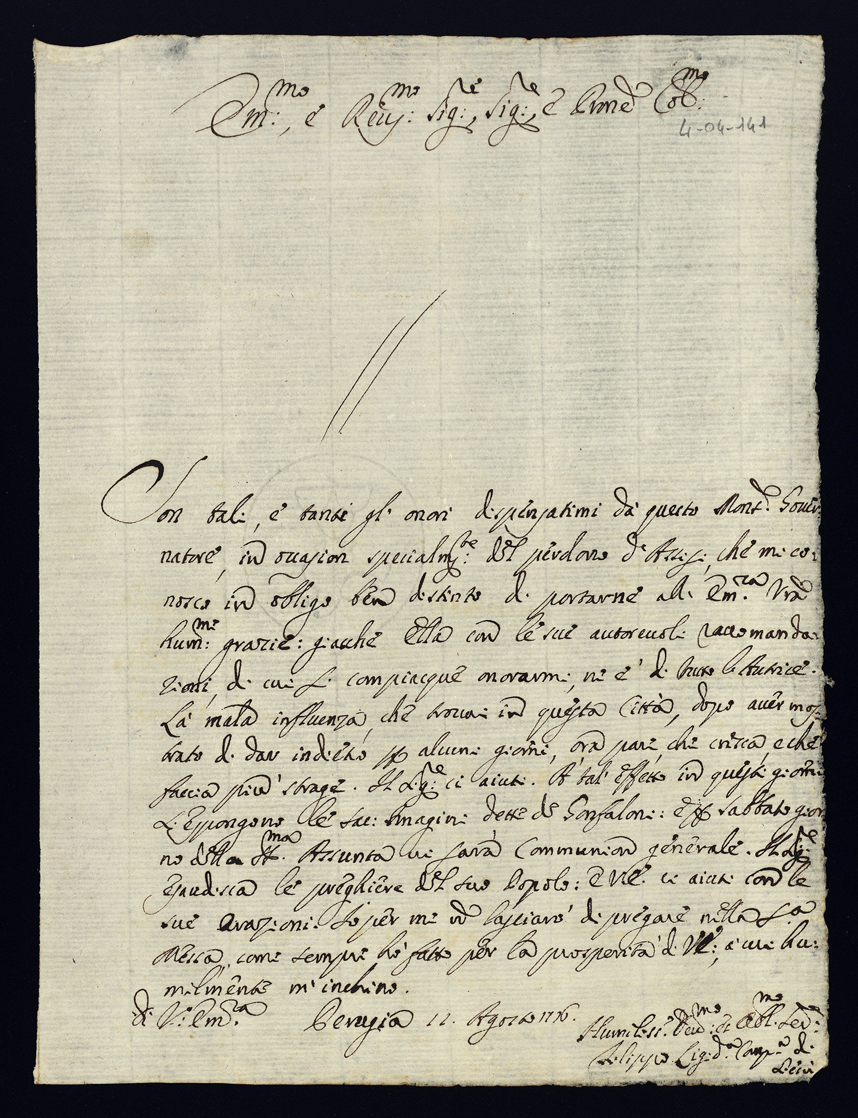 Em:mo, e Reu:mo Sig:re, Sig:re, e Prone Col:mo
4-04-141
Son tali, e tanti gl'onori dispensatimi da questo Mons:r Gouer
natore, in occasion specialm:te del perdono d'Assisi, che mi co:
nosco in obligo ben distinto di portarne all'Em:za Vra
hum:me grazie: giacche Ella con le sue autoreuoli raccomanda:
zioni, di cui si compiacque onorarmi, ne è di tutto l'Autrice.
La mala influenza, che trouai in questa Città, dopo auer mos
trato di dar indietro p alcuni giorni, ora pare, che cresca, e che
faccia più strage. Il Sig:re ci aiuti. A tal effetto in questi giorni
si espongono le Sac: Imagini dette de Gonfaloni: e p sabbato gior
no della SS:ma Assunta ui sarà Communion generale. Il Sig:re
esaudisca le preghiere del suo Popolo: e VE: ci aiuti con le
sue Orazioni. Io per me non lascierò di pregare nella S:a
Messa, come sempre hò fatto per la prosperità di VE:, a cui hu:
milmente m'inchino.
di V: Em:za Perugia 11. Agosto
Humiliss: Deu:mo et Obl:mo Ser:re
Filippo